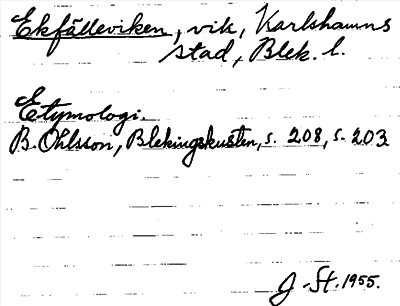 Ekfälleviken, vik, Karlshamns
stad, Blek. l.
Etymologi.
B. Ohlsson, Blekingskusten, s. 208, s. 203
J. St. 1955.